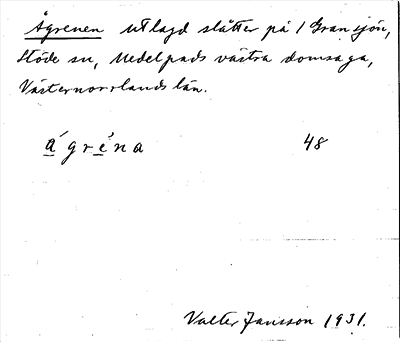 Ågrenen utlagd slåtter på / Gransjön,
Stöde sn, Medelpads västra domsaga,
Västernorrlands län.
a´grèna 48
Valter Jansson 1931.